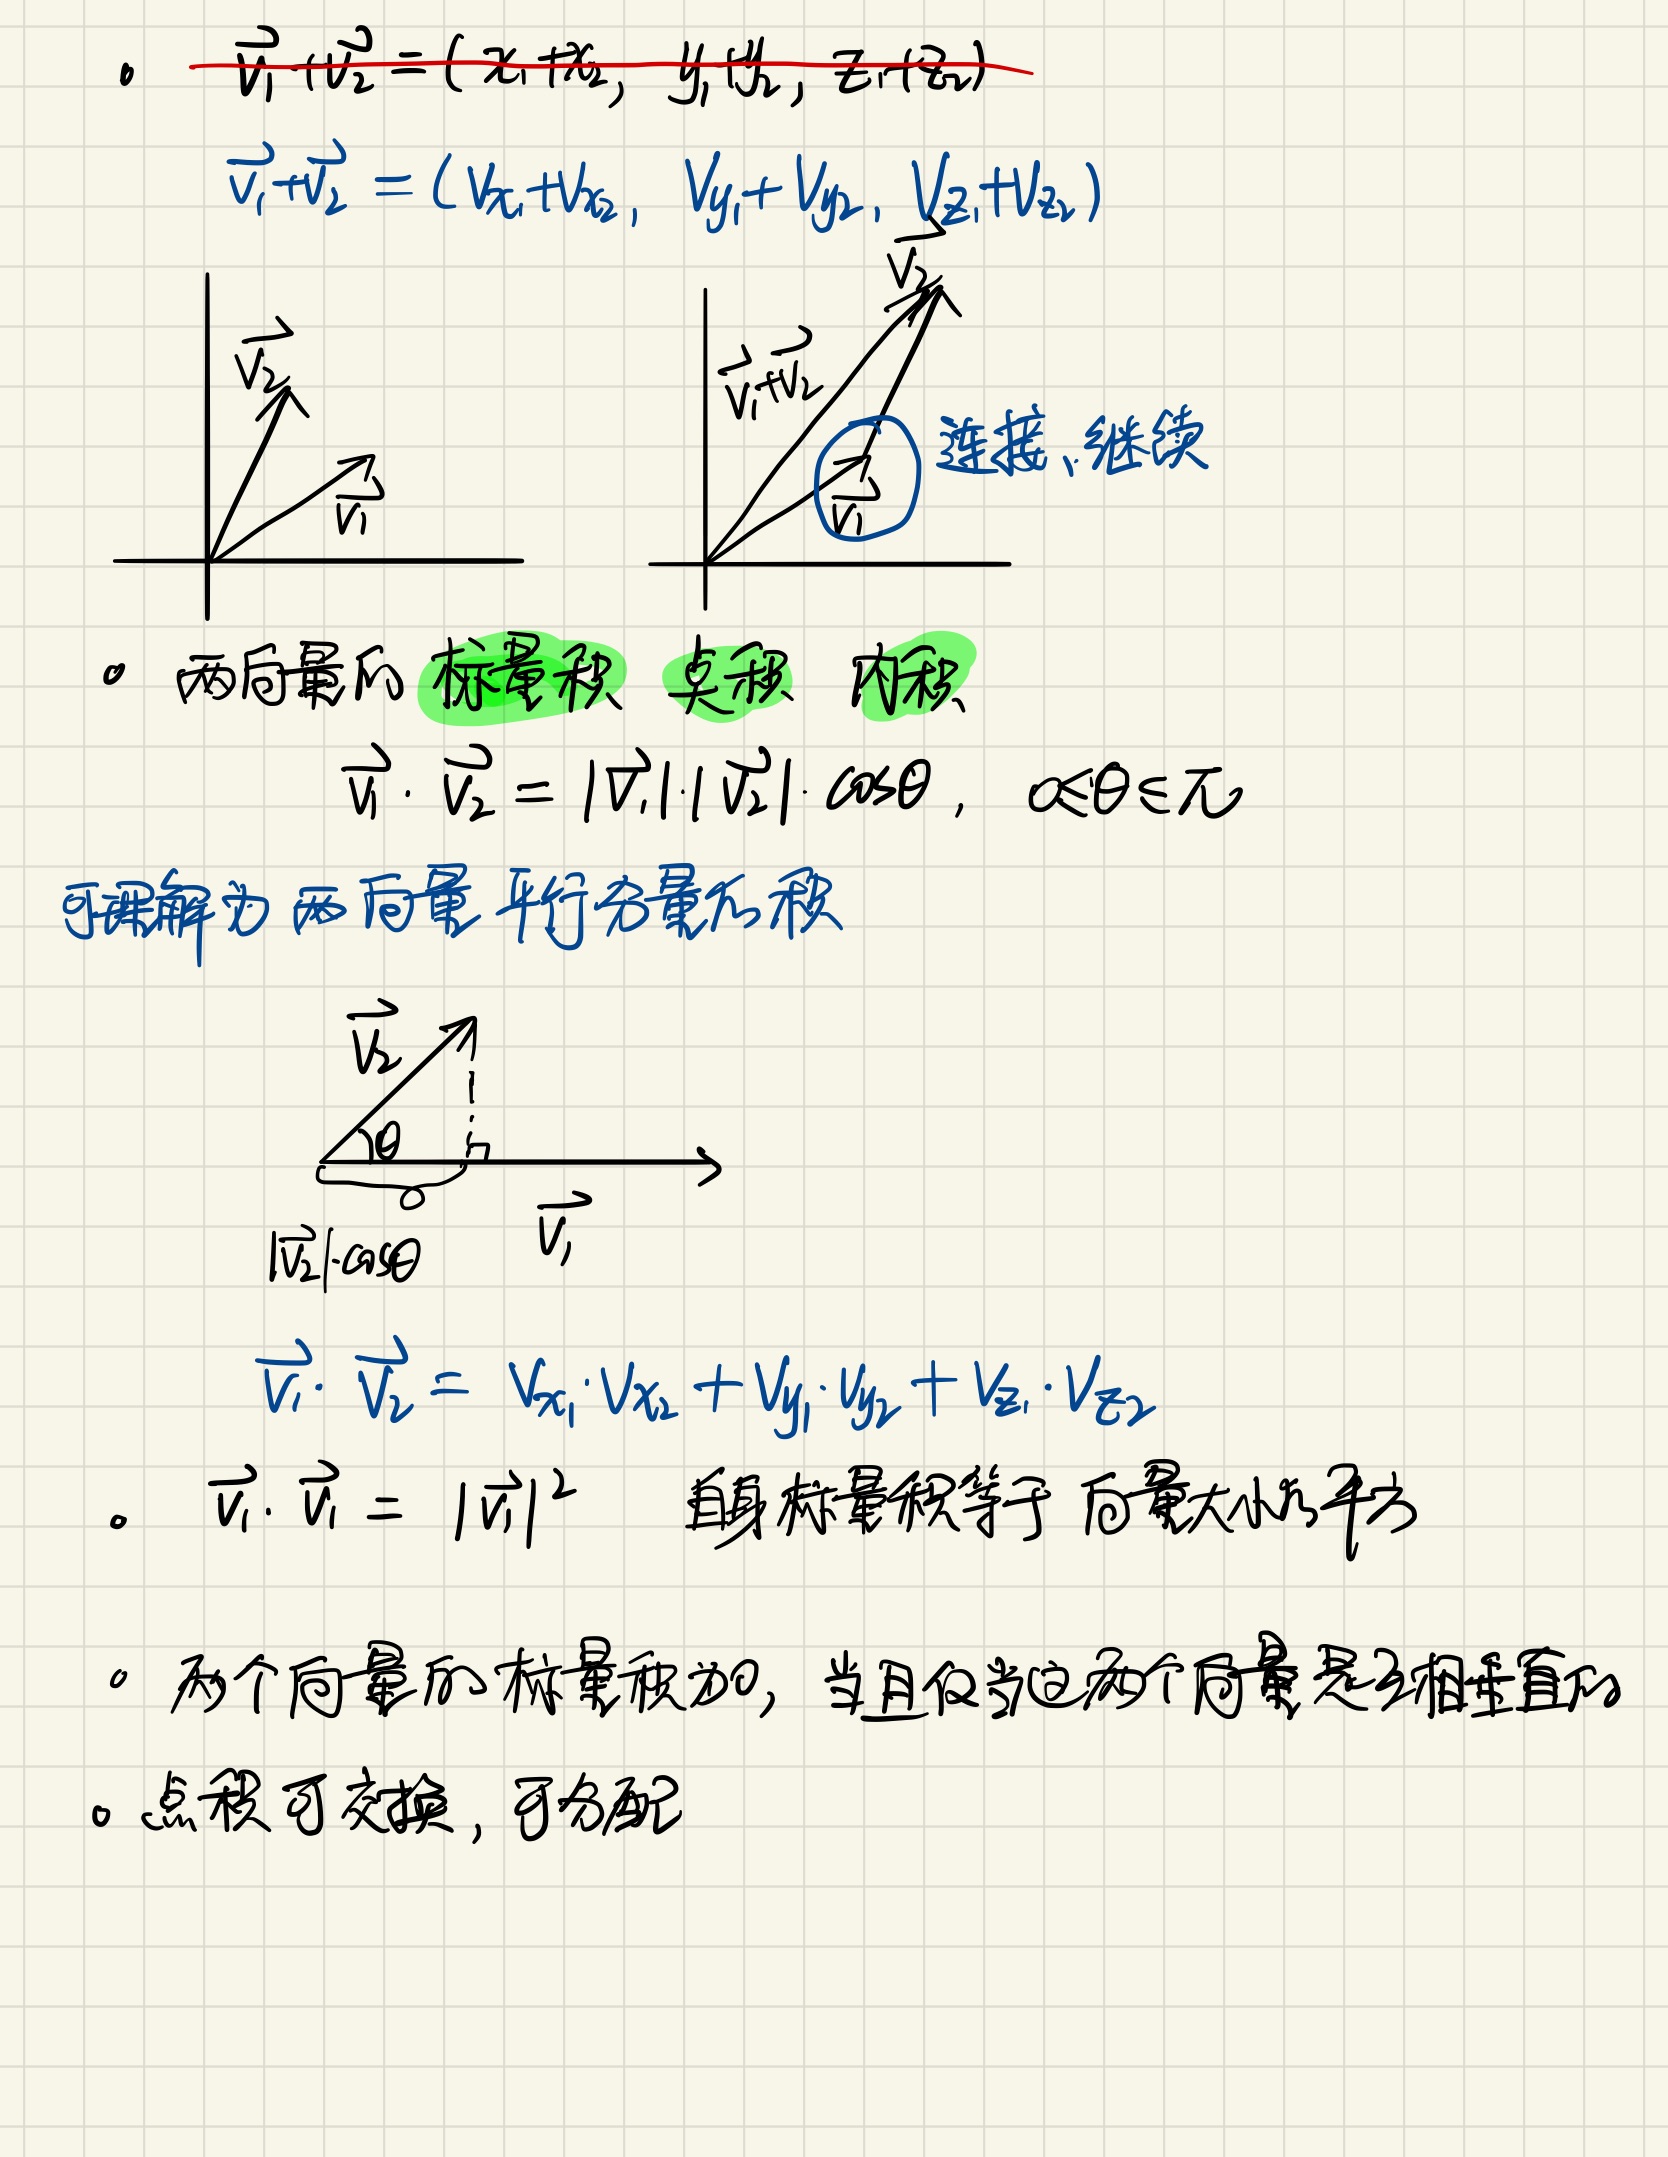 v⃗₁+v⃗₂=(x₁+x₂, y₁+y₂, z₁+z₂)
v⃗₁+v⃗₂=(Vx₁+Vx₂, Vy₁+Vy₂, Vz₁+Vz₂)
v⃗₂
v⃗₁
v⃗₂
v⃗₁+v⃗₂
v⃗₁
连接、继续
两向量的 标量积 点积 内积
v⃗₁·v⃗₂=|v⃗₁|·|v⃗₂|·cosθ, 0≤θ≤π
可理解为 两向量 平行分量的积
v⃗₂
θ
v⃗₁
|v⃗₂|·cosθ
v⃗₁·v⃗₂=Vx₁·Vx₂+Vy₁·Vy₂+Vz₁·Vz₂
v⃗₁·v⃗₁=|v⃗₁|² 自身标量积等于 向量大小的平方
两个向量的标量积为0, 当且仅当这两个向量是互相垂直的
点积可交换, 可分配